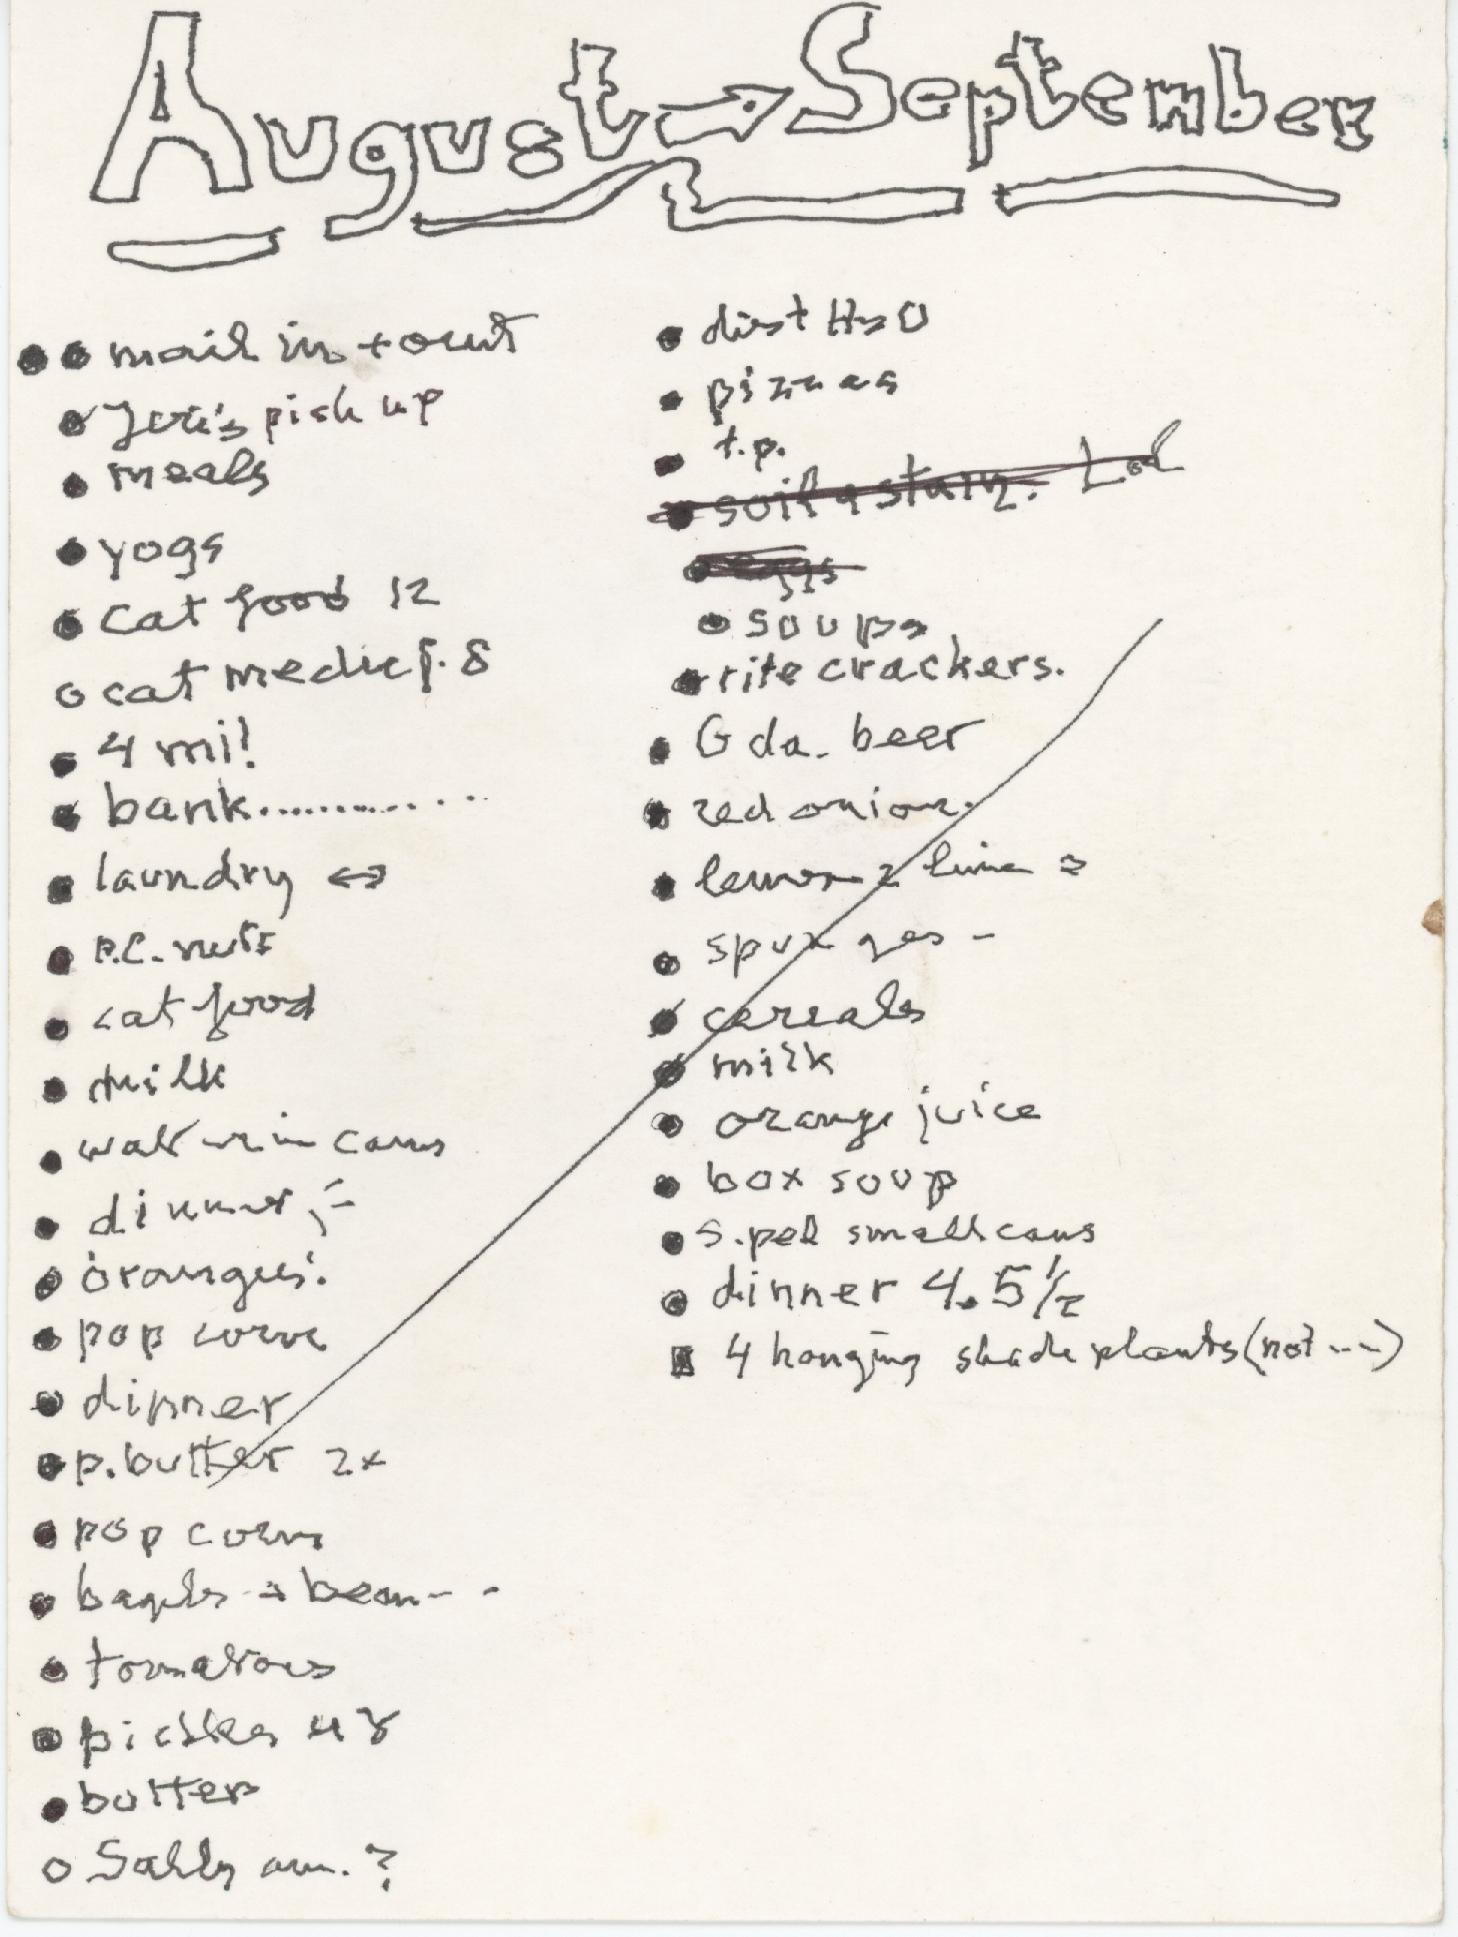 August → September
mail in + out
pick up
meals
yogs
cat food 12
cat medic 8
4 mi!
bank............
laundry ↔
P.C. nuts
cat food
milk
cans
dinner
oranges
pop corn
dinner
p. butter 2x
pop corn
bagels → bean - -
tomatoes
pickles
butter
Sally am. ?
dist H2O
pizzas
t.p.
soil
eggs
soups
rite crackers.
G da. beer
red onion.
lemon 2 lime
cereals
milk
orange juice
box soup
S. pel small cans
dinner 4. 5 1/2
4 hanging shade plants (not ---)